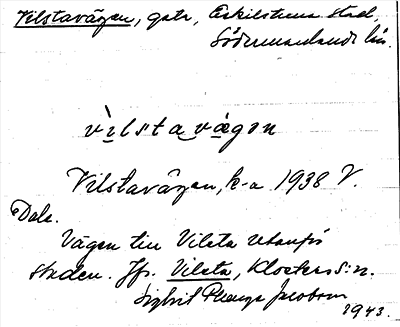 Vilstavägen, gata, Eskilstuna stad,
Södermanlands län.
vìlstavägen
Vilstavägen, k-a 1938 V.
Dale.
Vägen till Vilsta utanför
staden. Jfr. Vilsta, Klosters s:n.
Sigbrit Plænge Jacobson
1943.